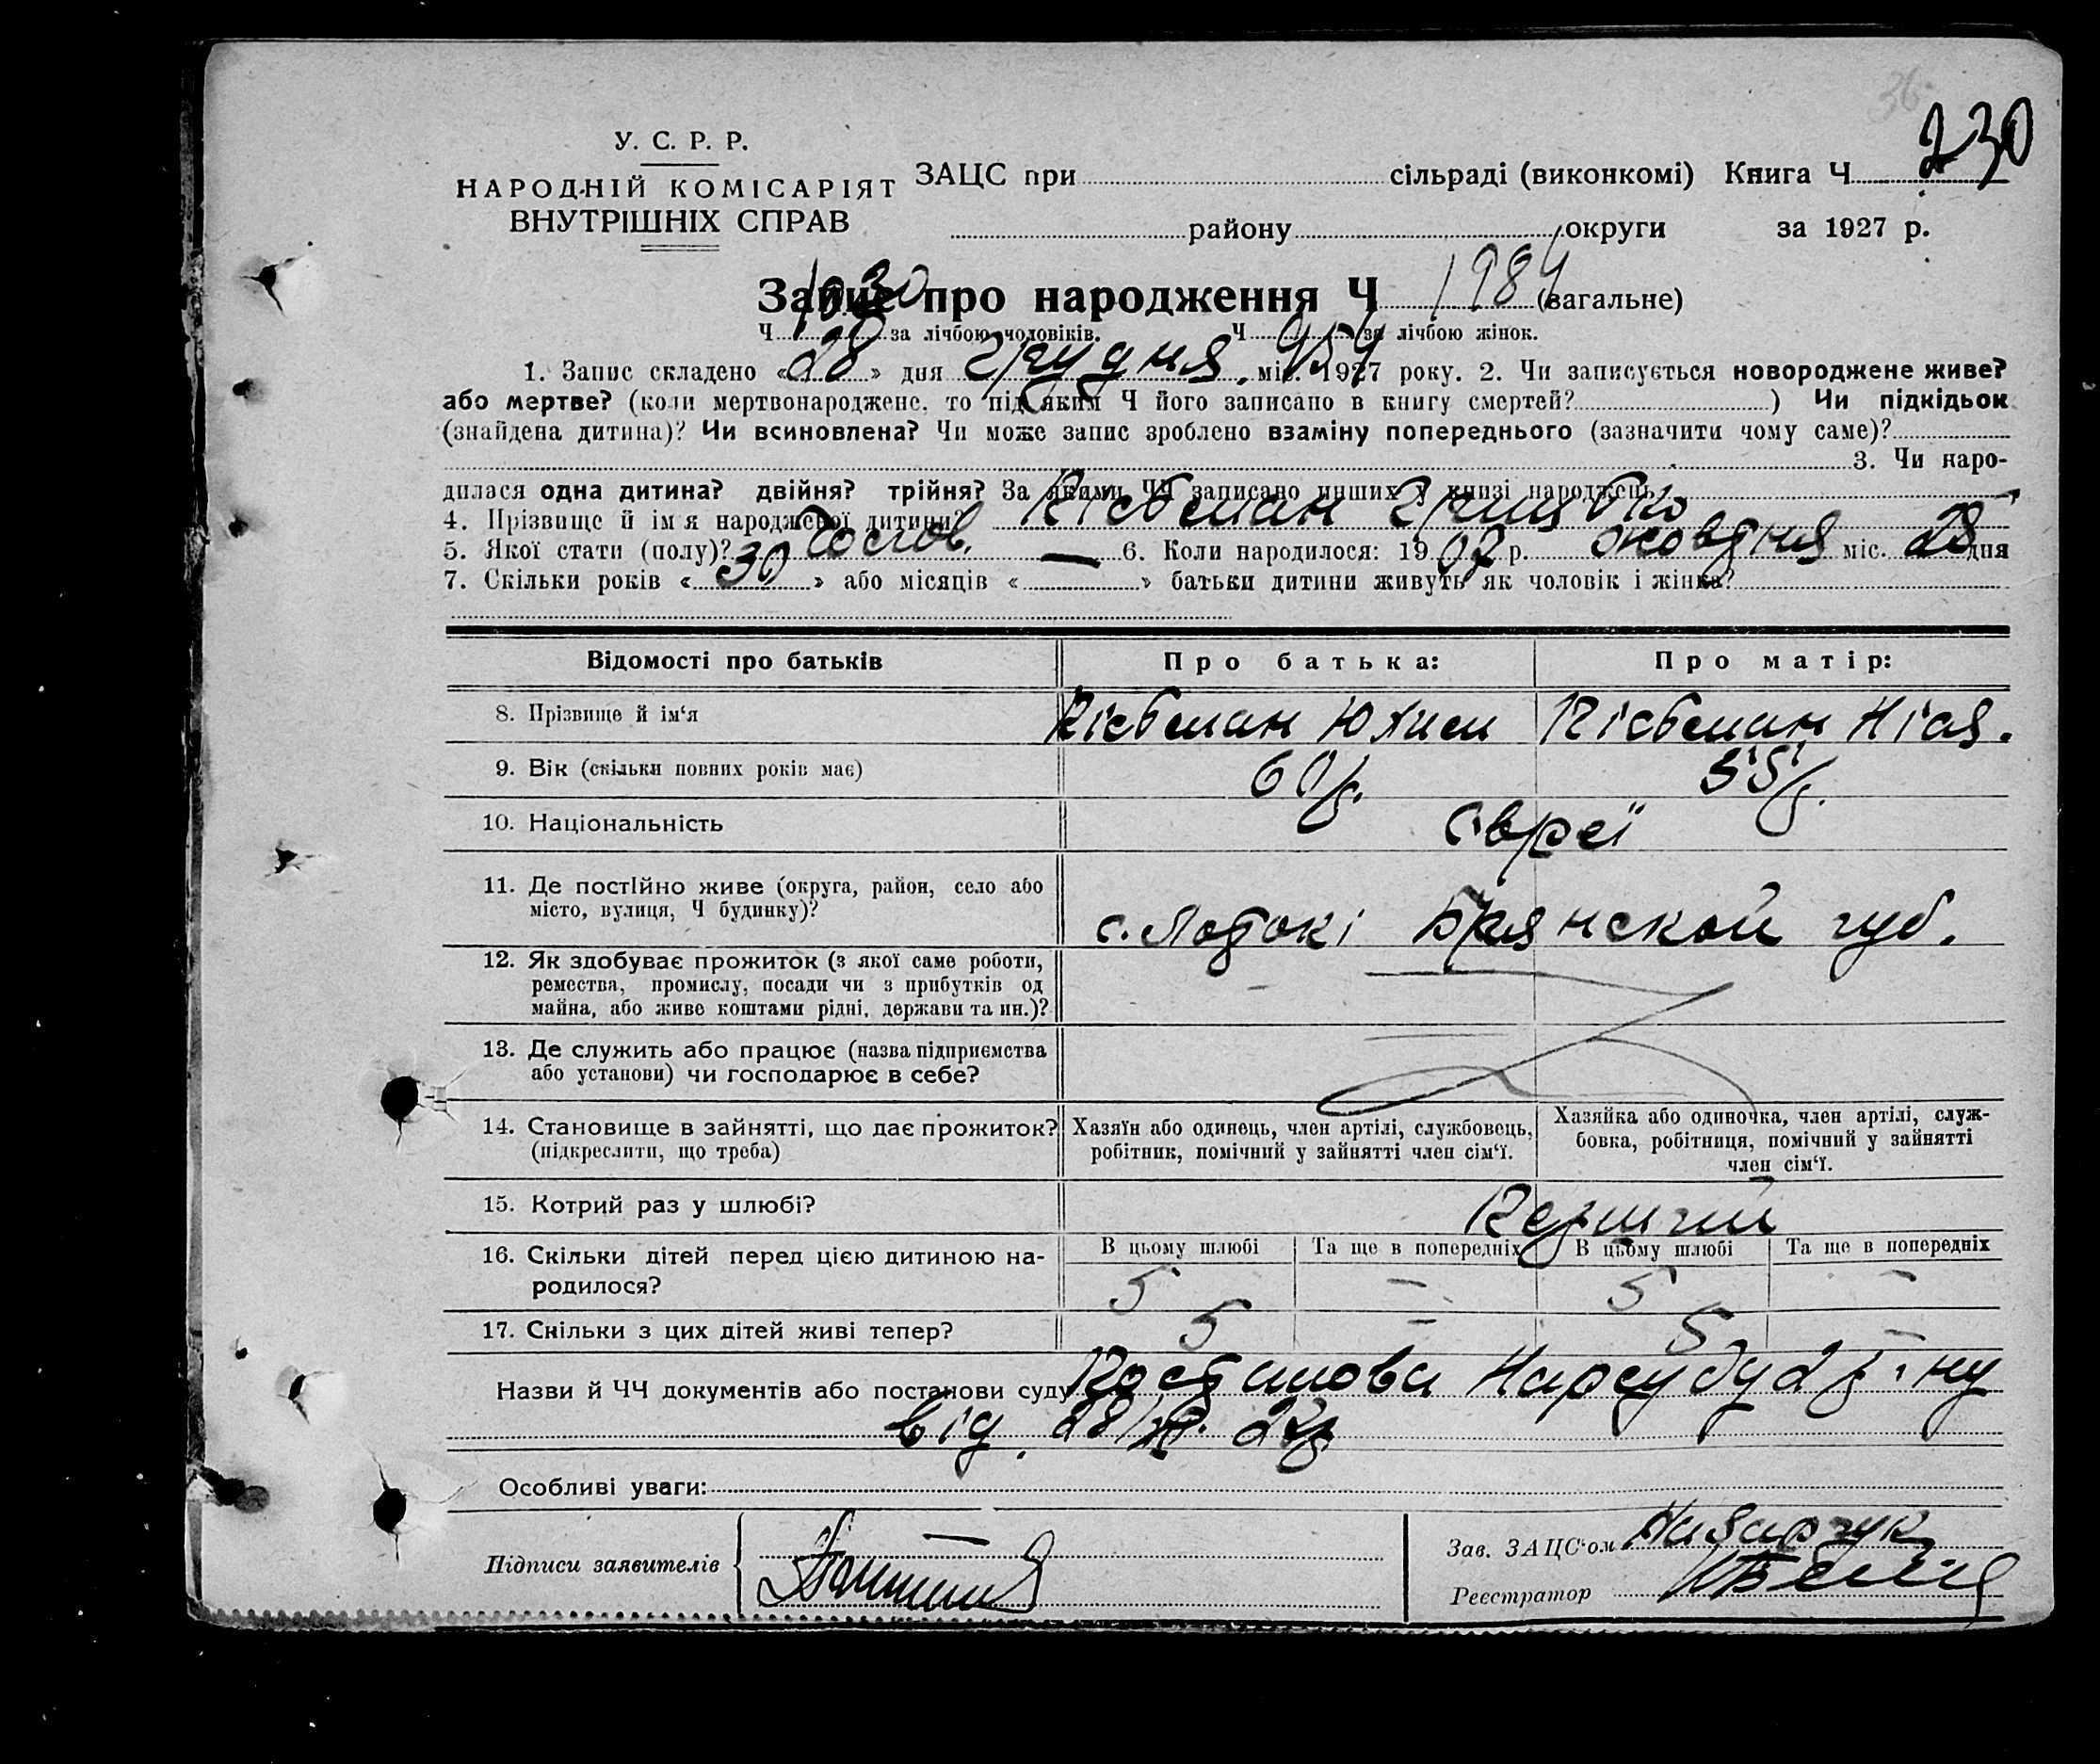 230
У. С. Р. Р.
НАРОДНІЙ КОМІСАРІЯТ
ВНУТРІШНІХ СПРАВ
ЗАЦС при сільраді (виконкомі) Книга Ч
району округи за 1927 р.
Запис про народження Ч 1984 (загальне)
1030
Ч за лічбою чоловіків. Ч 954 за лічбою жінок.
1. Запис складено «28» дня грудня міс. 1927 року. 2. Чи записується новороджене живе?
або мертве? (коли мертвонароджене, то під яким Ч його записано в книгу смертей? ) Чи підкідьок
(знайдена дитина)? Чи всиновлена? Чи може запис зроблено взаміну попереднього (зазначити чому саме)?
3. Чи наро-
дилася одна дитина? двійня? трійня? За якими ЧЧ записано инших у книзі народжень
4. Прізвище й ім'я народженої дитини?
5. Якої стати (полу)? чолов. — 6. Коли народилося: 1907 р. жовтня міс. 28 дня
7. Скільки років «30» або місяців « » батьки дитини живуть як чоловік і жінка?
Відомості про батьків Про батька: Про матір:
8. Прізвище й ім'я
9. Вік (скільки повних років має) 60 р. 55 р.
10. Національність євреї
11. Де постійно живе (округа, район, село або
місто, вулиця, Ч будинку)?
Брянской губ.
12. Як здобуває прожиток (з якої саме роботи,
ремества, промислу, посади чи з прибутків од
майна, або живе коштами рідні, держави та ин.)?
13. Де служить або працює (назва підприємства
або установи) чи господарює в себе?
14. Становище в зайнятті, що дає прожиток?
(підкреслити, що треба)
Хазяїн або одинець, член артілі, службовець,
робітник, помічний у зайнятті член сім'ї.
Хазяйка або одиночка, член артілі, служ-
бовка, робітниця, помічний у зайнятті
член сім'ї.
15. Котрий раз у шлюбі?
16. Скільки дітей перед цією дитиною на-
родилося?
В цьому шлюбі Та ще в попередніх В цьому шлюбі Та ще в попередніх
5 — 5 —
17. Скільки з цих дітей живі тепер? 5 — 5 —
Назви й ЧЧ документів або постанови суду Постанова Нарсуду
від 28/XII 27 р.
Особливі уваги:
Підписи заявителів
Зав. ЗАЦС'ом Назарчук
Реєстратор